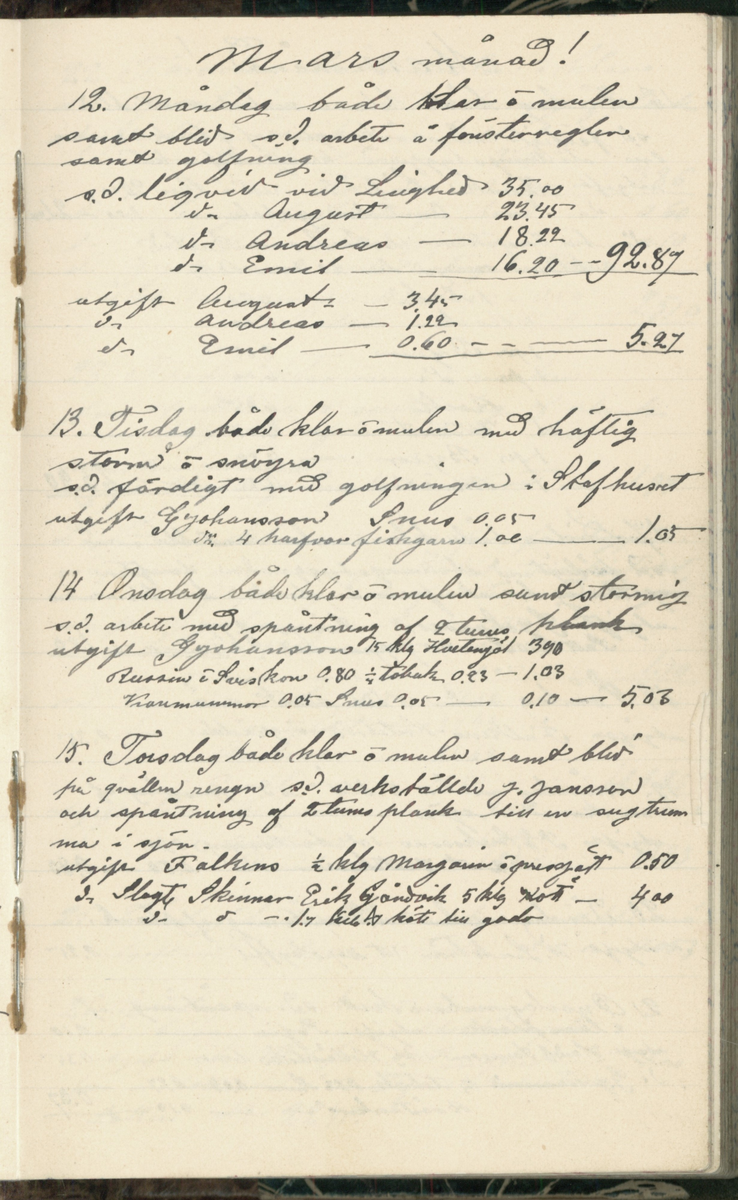 Mars månad!
12. Måndag både klar ö mulen
samt blid s.d. arbete å fönsterregler
samt golfning
s.d. liqvid vid Ledighed 35.00
do August — 23.45
do Andreas — 18.22
do Emil — 16.20 -- 92.87
utgift August — 3.45
do Andreas — 1.22
do Emil — 0.60 - - — 5.27
13. Tisdag både klar ö mulen med häftig
storm ö snöyra
s.d. färdigt med golfningen i Stafhuset
utgift Gjohansson Snus 0.05
do 4 harfvor fiskgarn 1.00 — 1.05
14 Onsdag både klar ö mulen samt stormig
s.d. arbete med spåntning af 2 tums plank
utgift Gjohansson 15 klg Hvetemjöl 390
Russin ö Sviskon 0.80 ½ tobak 0.23 — 1.03
Kardmummor 0.05 Snus 0.05 — 0.10 — 5.03
15. Torsdag både klar ö mulen samt blid
på qvällen rengn s.d. verkstälde J. Jansson
och spåntning af 2 tums plank till en sugtrum
ma i sjön.
utgift Falkens ½ klg Margarin ö presjäst 0.50
do Slagt Skinnar Erik 5 klg Kött — 400
do do — 1.7 kött till godo